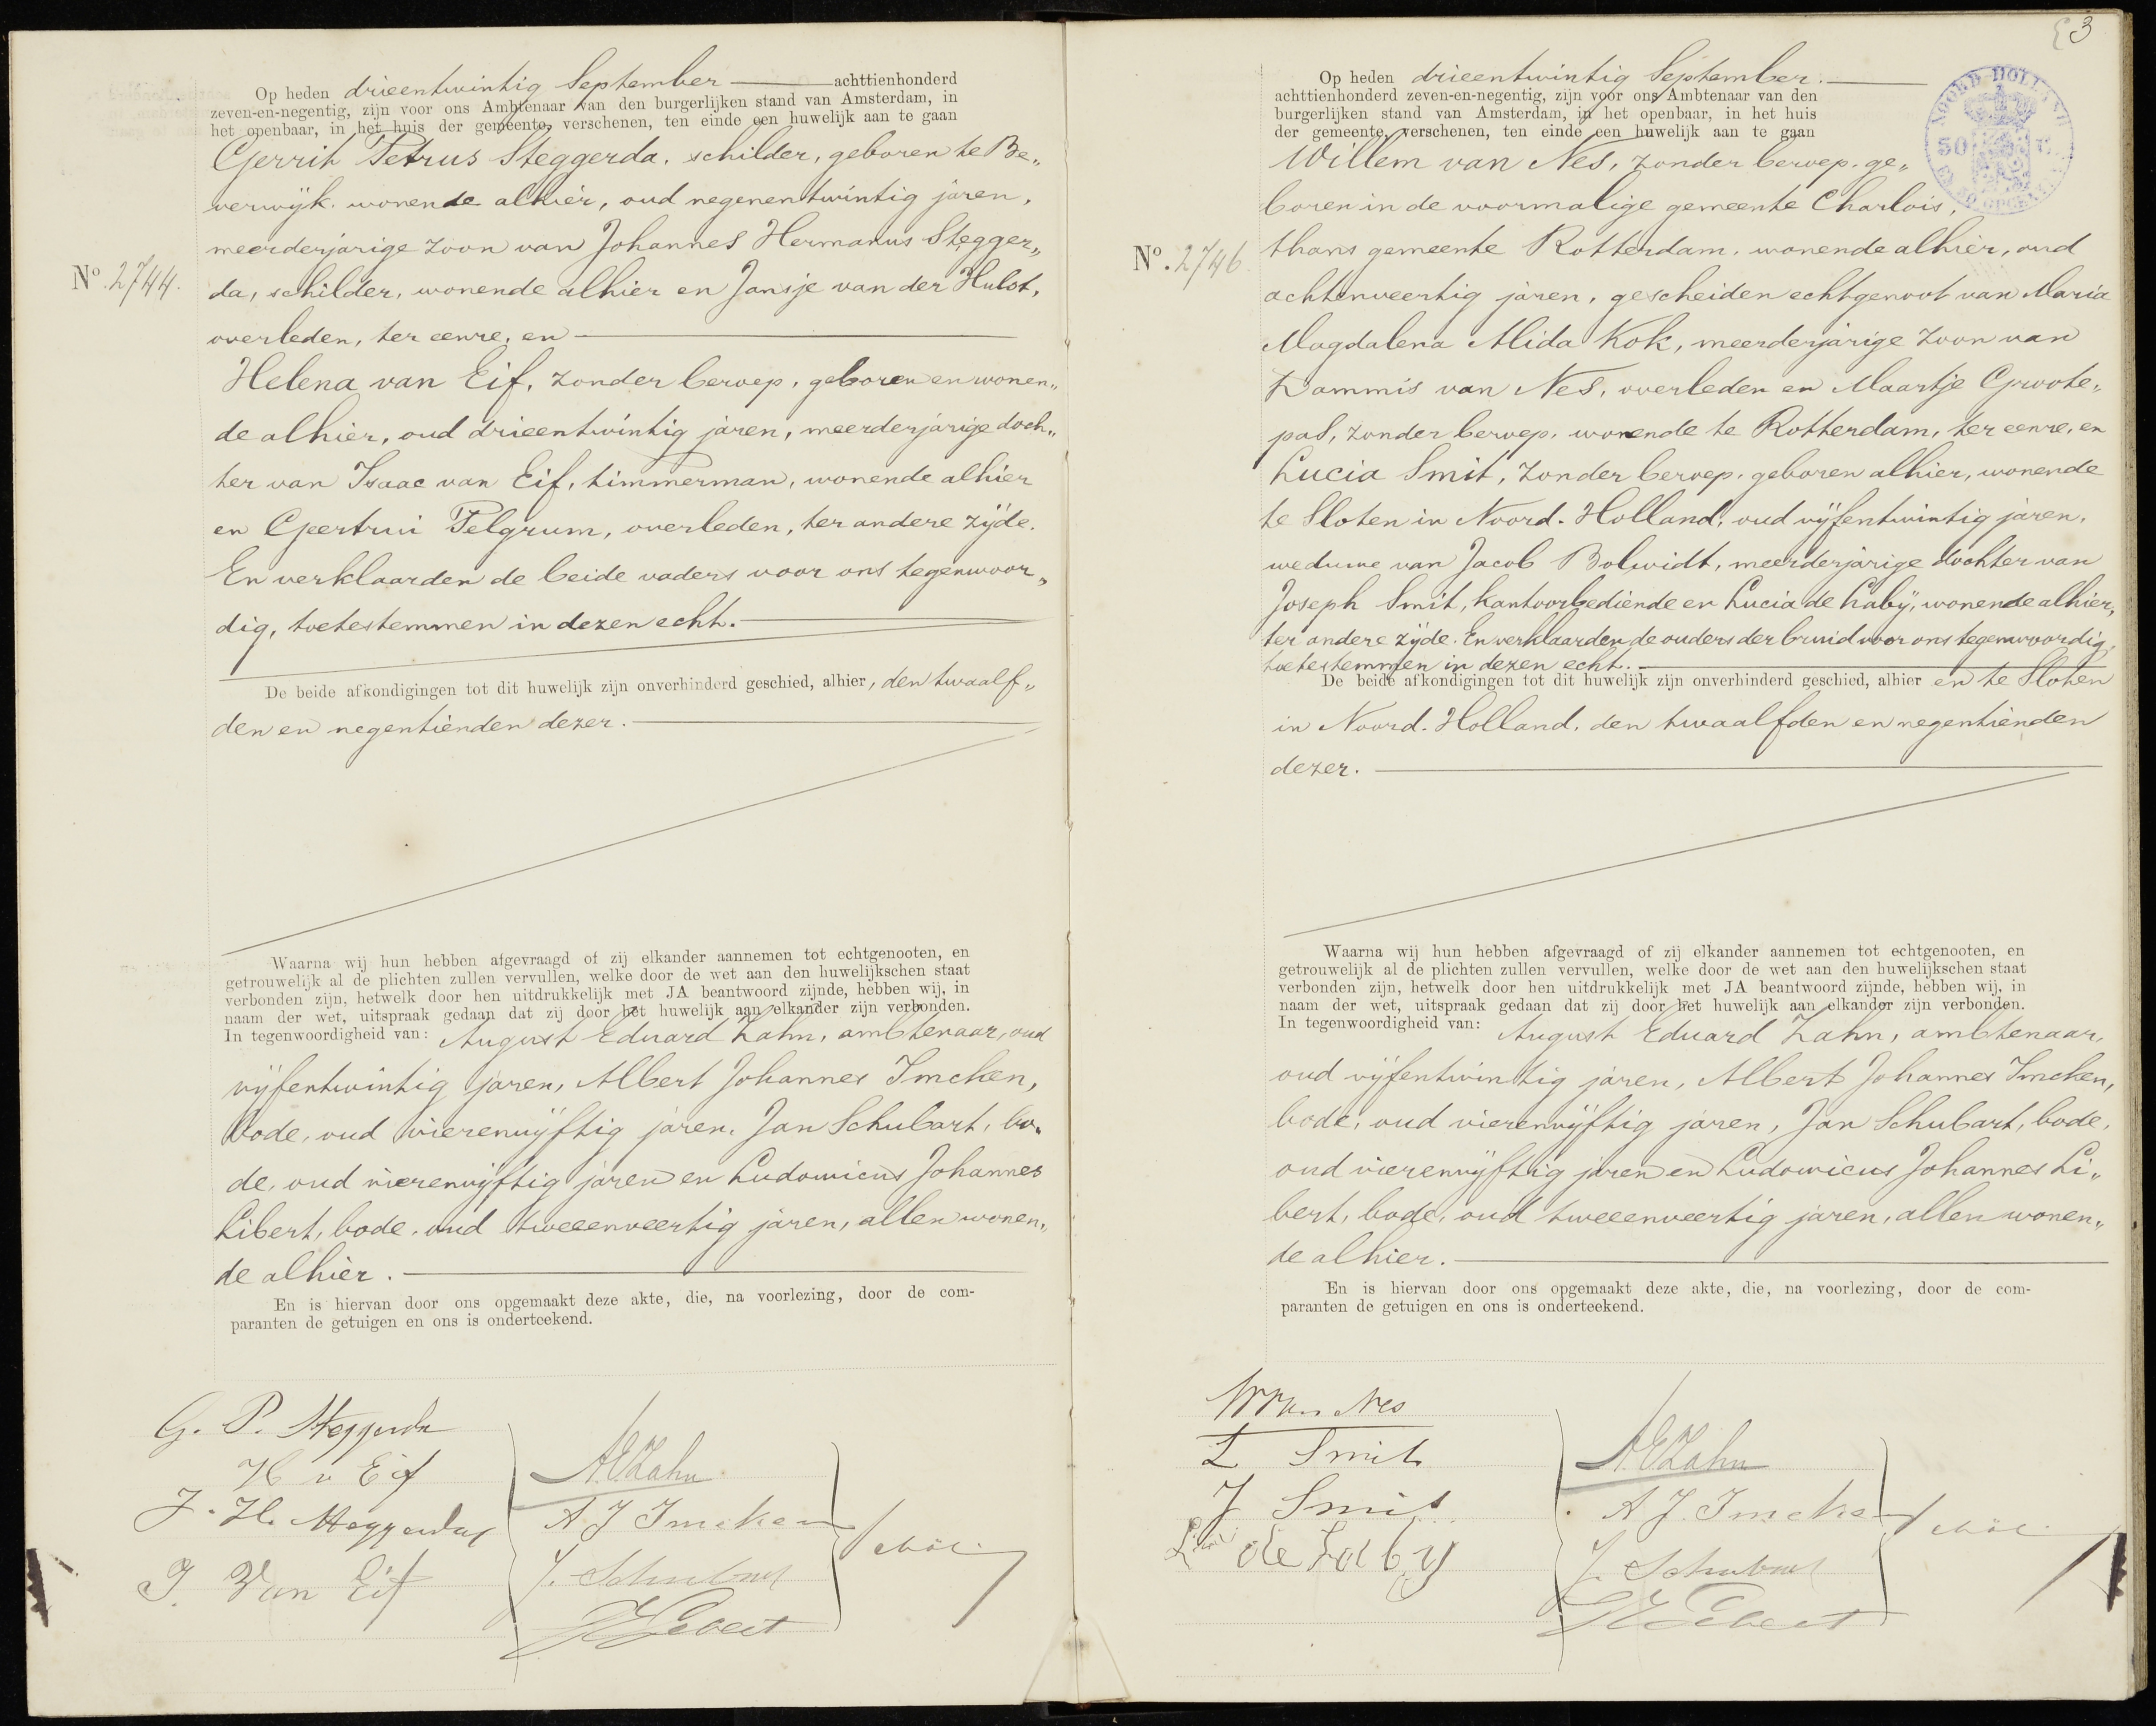 Op heden drieentwintig September achttienhonderd
zeven-en-negentig, zijn voor ons Ambtenaar van den burgerlijken stand van Amsterdam, in
het openbaar, in het huis der gemeente, verschenen, ten einde een huwelijk aan te gaan
Gerrit Petrus Steggerda, schilder, geboren te Be„
verwijk, wonende alhier, oud negenentwintig jaren,
meerderjarige zoon van Johannes Hermanus Stegger„
No. 2744.
da, schilder, wonende alhier en Jansje van der Hulst,
overleden, ter eenre, en
Helena van Eif, zonder beroep, geboren en wonen„
de alhier, oud drieentwintig jaren, meerderjarige doch„
ter van Isaac van Eif, timmerman, wonende alhier
en Geertrui Pelgrum, overleden, ter andere zijde.
En verklaarden de beide vaders voor ons tegenwoor„
dig, toetestemmen in dezen echt.
De beide afkondigingen tot dit huwelijk zijn onverhinderd geschied, alhier, den twaalf„
den en negentienden dezer.
Waarna wij hun hebben afgevraagd of zij elkander aannemen tot echtgenooten, en
getrouwelijk al de plichten zullen vervullen, welke door de wet aan den huwelijkschen staat
verbonden zijn, hetwelk door hen uitdrukkelijk met JA beantwoord zijnde, hebben wij, in
naam der wet, uitspraak gedaan dat zij door het huwelijk aan elkander zijn verbonden.
In tegenwoordigheid van: August Eduard Zahn, ambtenaar, oud
vijfentwintig jaren, Albert Johannes Imcken,
bode, oud vierenvijftig jaren, Jan Schubart, bo„
de, oud vierenvijftig jaren en Ludovicus Johannes
Libert, bode, oud tweeenveertig jaren, allen wonen„
de alhier.
En is hiervan door ons opgemaakt deze akte, die, na voorlezing, door de com-
paranten de getuigen en ons is onderteekend.
G. P. Steggerda
H v Eif
J. H. Steggerda
I. Van Eif
A.E. Zahn
A J Imcken
J. Schubart
LJ Libert
3
NOORD-HOLLAND
50 C.
Op heden drieentwintig September.
achttienhonderd zeven-en-negentig, zijn voor ons Ambtenaar van den
burgerlijken stand van Amsterdam, in het openbaar, in het huis
der gemeente, verschenen, ten einde een huwelijk aan te gaan
Willem van Nes, zonder beroep, ge„
boren in de voormalige gemeente Charlois,
No. 2746.
thans gemeente Rotterdam, wonende alhier, oud
achtenveertig jaren, gescheiden echtgenoot van Maria
Magdalena Alida Kok, meerderjarige zoon van
Dammis van Nes, overleden en Maartje Groote„
pas, zonder beroep, wonende te Rotterdam, ter eenre, en
Lucia Smit, zonder beroep, geboren alhier, wonende
te Sloten in Noord-Holland, oud vijfentwintig jaren,
weduwe van Jacob Bolwidt, meerderjarige dochter van
Joseph Smit, kantoorbediende en Lucia de Laby, wonende alhier,
ter andere zijde. En verklaarden de ouders der bruid voor ons tegenwoordig,
toetestemmen in dezen echt.
De beide afkondigingen tot dit huwelijk zijn onverhinderd geschied, alhier en te Sloten
in Noord-Holland, den twaalfden en negentienden
dezer.
Waarna wij hun hebben afgevraagd of zij elkander aannemen tot echtgenooten, en
getrouwelijk al de plichten zullen vervullen, welke door de wet aan den huwelijkschen staat
verbonden zijn, hetwelk door hen uitdrukkelijk met JA beantwoord zijnde, hebben wij, in
naam der wet, uitspraak gedaan dat zij door het huwelijk aan elkander zijn verbonden.
In tegenwoordigheid van: August Eduard Zahn, ambtenaar,
oud vijfentwintig jaren, Albert Johannes Imcken,
bode, oud vierenvijftig jaren, Jan Schubart, bode,
oud vierenvijftig jaren en Ludovicus Johannes Li„
bert, bode, oud tweeenveertig jaren, allen wonen„
de alhier.
En is hiervan door ons opgemaakt deze akte, die, na voorlezing, door de com-
paranten de getuigen en ons is onderteekend.
W van Nes
L Smit
J Smit
de Laby
A.E. Zahn
A. J. Imcken
J. Schubart
LJ Libert